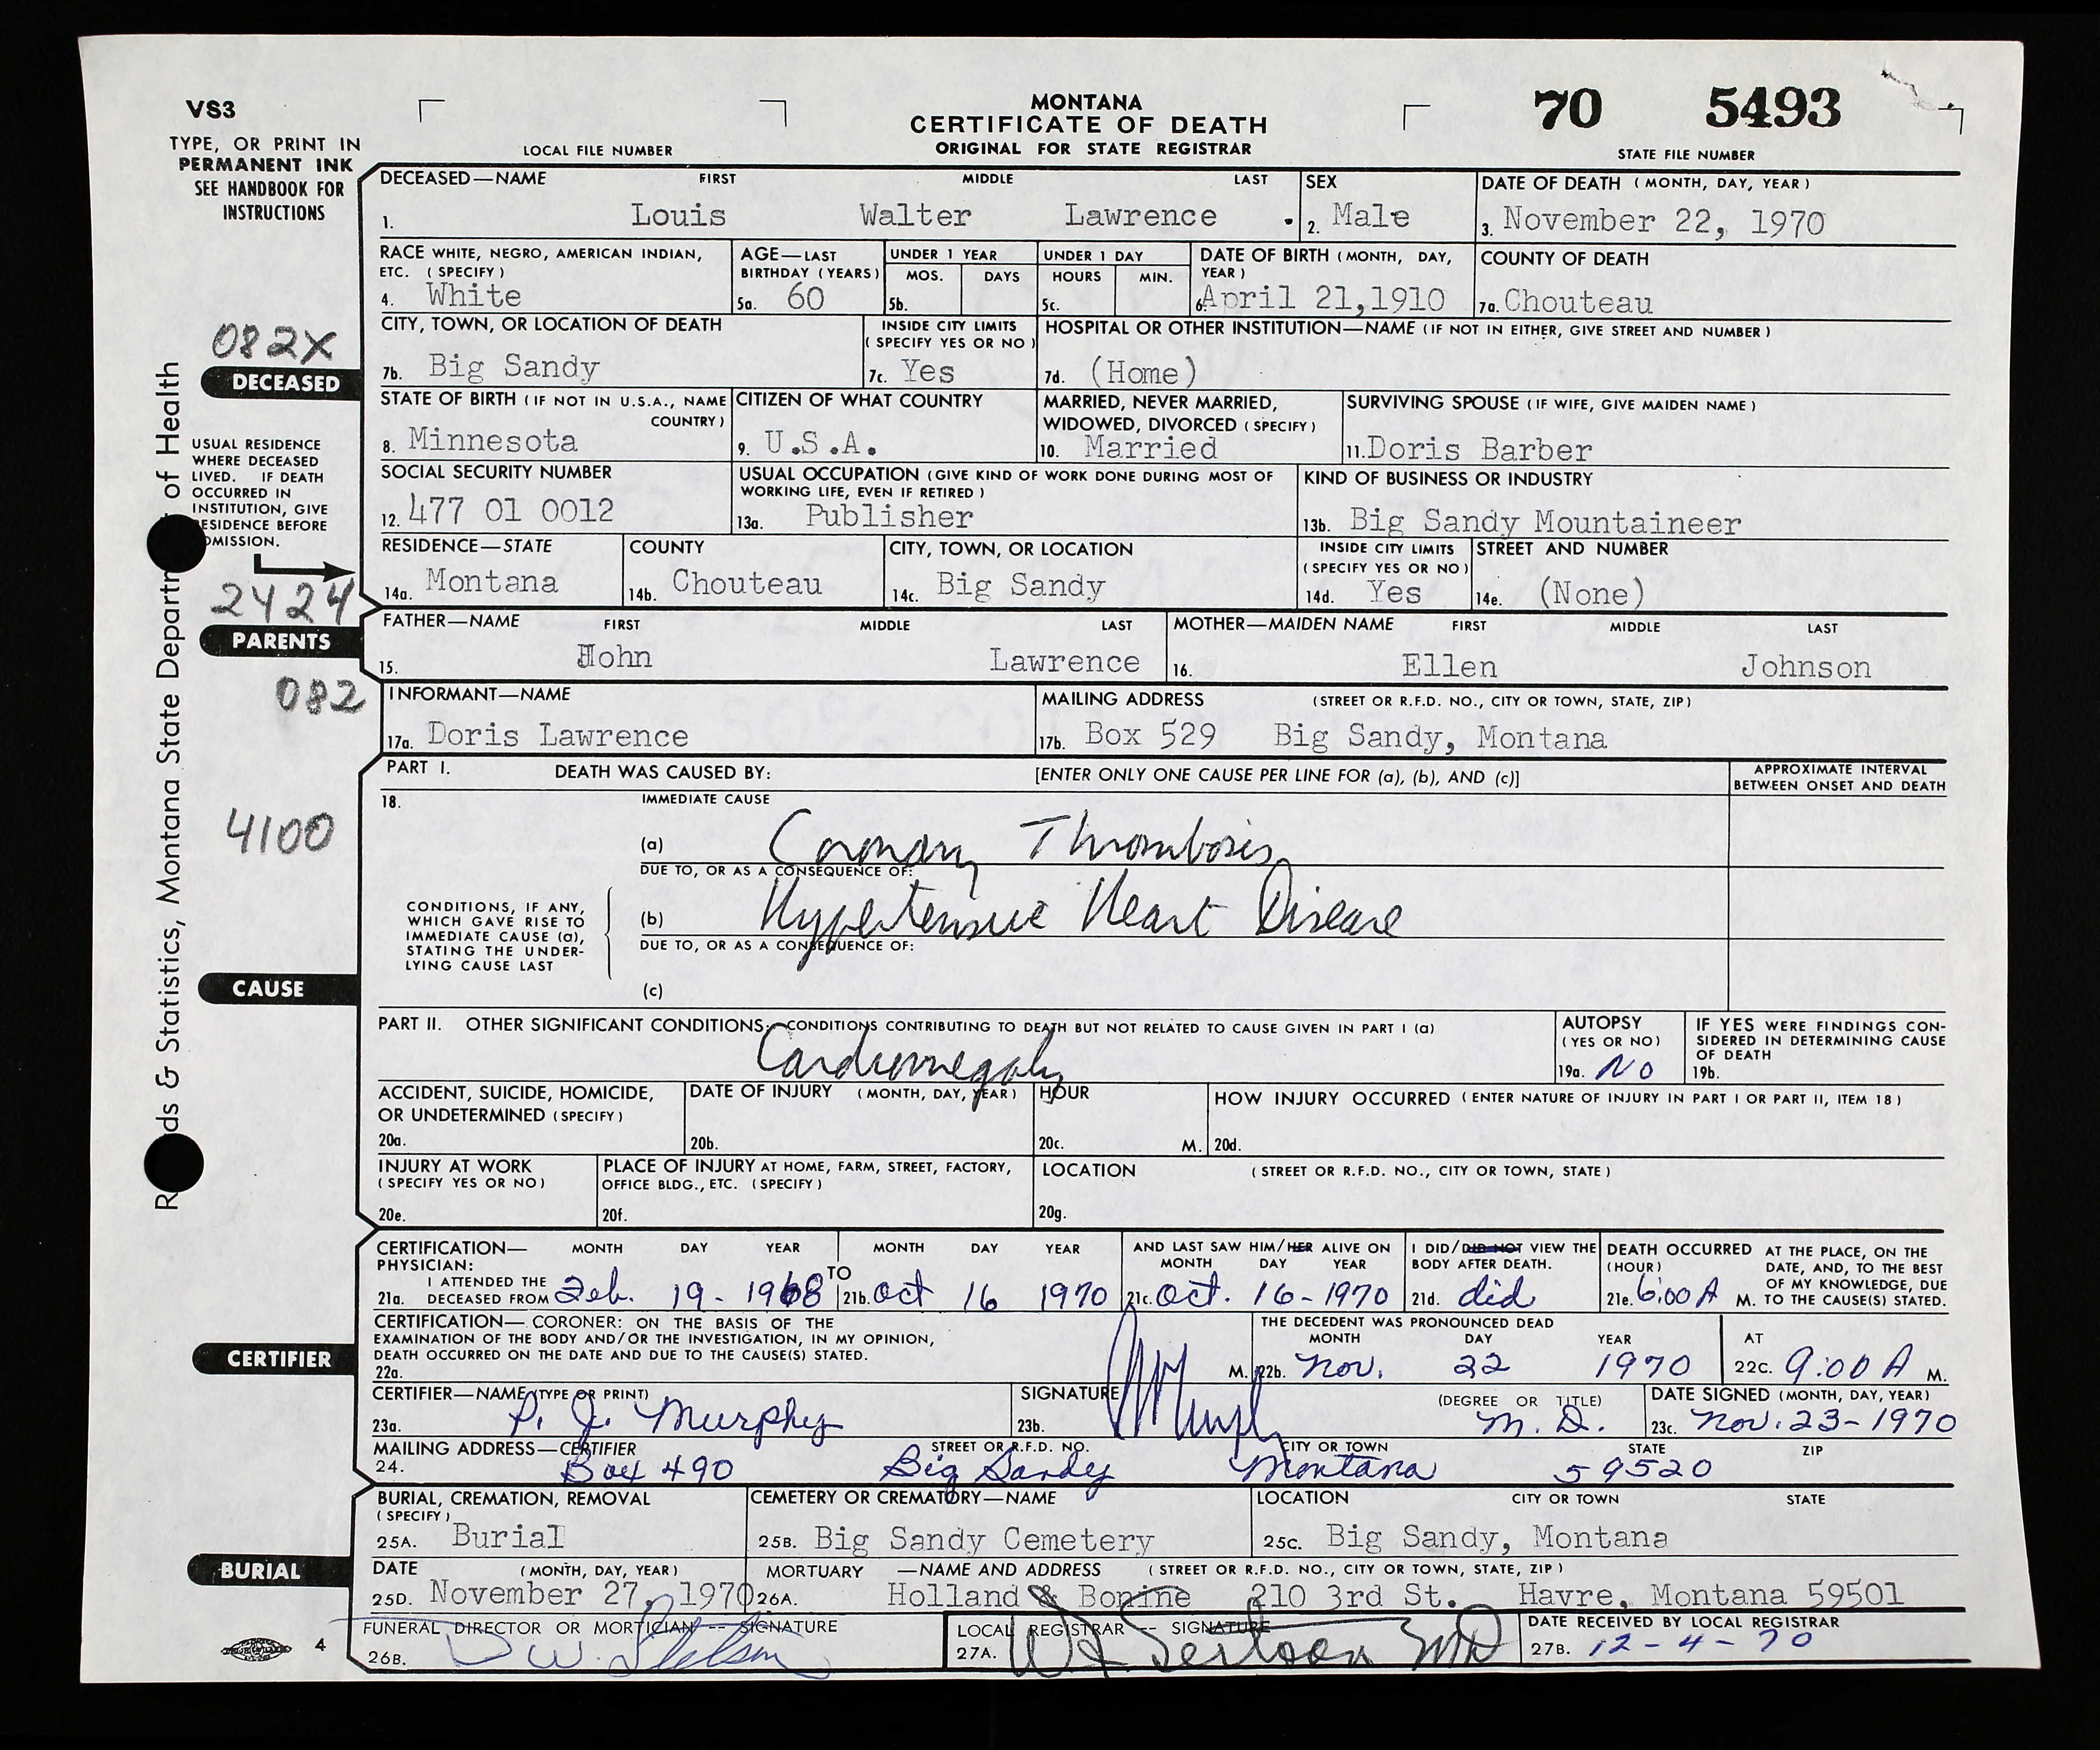 VS3
TYPE, OR PRINT IN
PERMANENT INK
SEE HANDBOOK FOR
INSTRUCTIONS
LOCAL FILE NUMBER
MONTANA
CERTIFICATE OF DEATH
ORIGINAL FOR STATE REGISTRAR
70 5493
STATE FILE NUMBER
DECEASED—NAME FIRST MIDDLE LAST
1. Louis Walter Lawrence
SEX
2. Male
DATE OF DEATH (MONTH, DAY, YEAR)
3. November 22, 1970
RACE WHITE, NEGRO, AMERICAN INDIAN,
ETC. (SPECIFY)
4. White
AGE—LAST
BIRTHDAY (YEARS)
5a. 60
UNDER 1 YEAR
MOS. DAYS
5b.
UNDER 1 DAY
HOURS MIN.
5c.
DATE OF BIRTH (MONTH, DAY,
YEAR)
6. April 21,1910
COUNTY OF DEATH
7a. Chouteau
082X
DECEASED
CITY, TOWN, OR LOCATION OF DEATH
7b. Big Sandy
INSIDE CITY LIMITS
(SPECIFY YES OR NO)
7c. Yes
HOSPITAL OR OTHER INSTITUTION—NAME (IF NOT IN EITHER, GIVE STREET AND NUMBER)
7d. (Home)
STATE OF BIRTH (IF NOT IN U.S.A., NAME
COUNTRY)
8. Minnesota
CITIZEN OF WHAT COUNTRY
9. U.S.A.
MARRIED, NEVER MARRIED,
WIDOWED, DIVORCED (SPECIFY)
10. Married
SURVIVING SPOUSE (IF WIFE, GIVE MAIDEN NAME)
11. Doris Barber
USUAL RESIDENCE
WHERE DECEASED
LIVED. IF DEATH
OCCURRED IN
INSTITUTION, GIVE
RESIDENCE BEFORE
ADMISSION.
SOCIAL SECURITY NUMBER
12. 477 01 0012
USUAL OCCUPATION (GIVE KIND OF WORK DONE DURING MOST OF
WORKING LIFE, EVEN IF RETIRED)
13a. Publisher
KIND OF BUSINESS OR INDUSTRY
13b. Big Sandy Mountaineer
RESIDENCE—STATE
14a. Montana
COUNTY
14b. Chouteau
CITY, TOWN, OR LOCATION
14c. Big Sandy
INSIDE CITY LIMITS
(SPECIFY YES OR NO)
14d. Yes
STREET AND NUMBER
14e. (None)
2424
PARENTS
FATHER—NAME FIRST MIDDLE LAST
15. John Lawrence
MOTHER—MAIDEN NAME FIRST MIDDLE LAST
16. Ellen Johnson
082
INFORMANT—NAME
17a. Doris Lawrence
MAILING ADDRESS (STREET OR R.F.D. NO., CITY OR TOWN, STATE, ZIP)
17b. Box 529 Big Sandy, Montana
PART I. DEATH WAS CAUSED BY: [ENTER ONLY ONE CAUSE PER LINE FOR (a), (b), AND (c)]
APPROXIMATE INTERVAL
BETWEEN ONSET AND DEATH
18. IMMEDIATE CAUSE
4100
(a) Coronary Thrombosis
DUE TO, OR AS A CONSEQUENCE OF:
CONDITIONS, IF ANY,
WHICH GAVE RISE TO
IMMEDIATE CAUSE (a),
STATING THE UNDER-
LYING CAUSE LAST
(b) Hypertensive Heart Disease
DUE TO, OR AS A CONSEQUENCE OF:
(c)
CAUSE
PART II. OTHER SIGNIFICANT CONDITIONS: CONDITIONS CONTRIBUTING TO DEATH BUT NOT RELATED TO CAUSE GIVEN IN PART I (a)
Cardiomegaly
AUTOPSY
(YES OR NO)
19a. No
IF YES WERE FINDINGS CON-
SIDERED IN DETERMINING CAUSE
OF DEATH
19b.
ACCIDENT, SUICIDE, HOMICIDE,
OR UNDETERMINED (SPECIFY)
20a.
DATE OF INJURY (MONTH, DAY, YEAR)
20b.
HOUR
20c. M.
HOW INJURY OCCURRED (ENTER NATURE OF INJURY IN PART I OR PART II, ITEM 18)
20d.
INJURY AT WORK
(SPECIFY YES OR NO)
20e.
PLACE OF INJURY AT HOME, FARM, STREET, FACTORY,
OFFICE BLDG., ETC. (SPECIFY)
20f.
LOCATION (STREET OR R.F.D. NO., CITY OR TOWN, STATE)
20g.
CERTIFICATION— MONTH DAY YEAR MONTH DAY YEAR
PHYSICIAN:
I ATTENDED THE
21a. DECEASED FROM Feb. 19 - 1968 TO 21b. Oct 16 1970
AND LAST SAW HIM/HER ALIVE ON
MONTH DAY YEAR
21c. Oct. 16 - 1970
I DID/DID NOT VIEW THE
BODY AFTER DEATH.
21d. did
DEATH OCCURRED AT THE PLACE, ON THE
(HOUR) DATE, AND, TO THE BEST
OF MY KNOWLEDGE, DUE
21e. 6:00 A M. TO THE CAUSE(S) STATED.
CERTIFIER
CERTIFICATION— CORONER: ON THE BASIS OF THE
EXAMINATION OF THE BODY AND/OR THE INVESTIGATION, IN MY OPINION,
DEATH OCCURRED ON THE DATE AND DUE TO THE CAUSE(S) STATED.
22a. M.
THE DECEDENT WAS PRONOUNCED DEAD
MONTH DAY YEAR
22b. Nov. 22 1970
AT
22c. 9:00 A M.
CERTIFIER—NAME (TYPE OR PRINT)
23a. P. J. Murphy
SIGNATURE (DEGREE OR TITLE)
23b. Murphy M. D.
DATE SIGNED (MONTH, DAY, YEAR)
23c. Nov. 23 - 1970
MAILING ADDRESS—CERTIFIER STREET OR R.F.D. NO. CITY OR TOWN STATE ZIP
24. Box 490 Big Sandy Montana 59520
BURIAL
BURIAL, CREMATION, REMOVAL
(SPECIFY)
25A. Burial
CEMETERY OR CREMATORY—NAME
25B. Big Sandy Cemetery
LOCATION CITY OR TOWN STATE
25C. Big Sandy, Montana
DATE (MONTH, DAY, YEAR)
25D. November 27, 1970
MORTUARY —NAME AND ADDRESS (STREET OR R.F.D. NO., CITY OR TOWN, STATE, ZIP)
26A. Holland & Bonine 210 3rd St. Havre, Montana 59501
FUNERAL DIRECTOR OR MORTICIAN -- SIGNATURE
26B. D W.
LOCAL REGISTRAR -- SIGNATURE
27A. MD
DATE RECEIVED BY LOCAL REGISTRAR
27B. 12-4-70
4
Records & Statistics, Montana State Department of Health